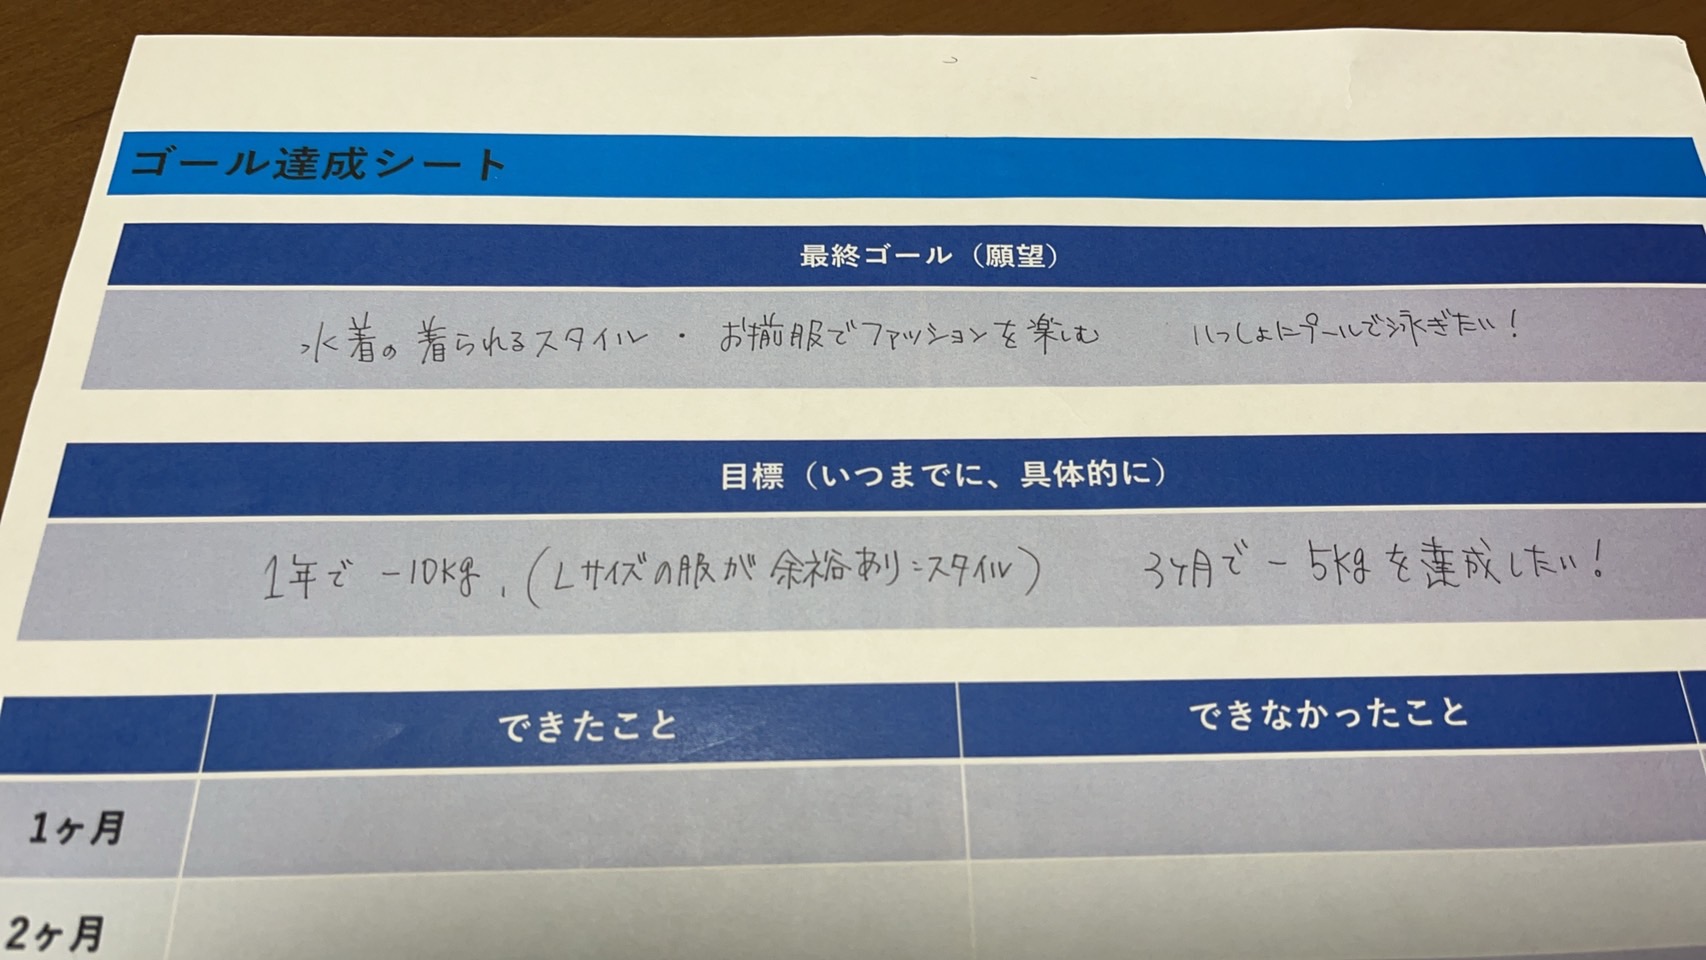 ゴール達成シート
最終ゴール（願望）
水着の着られるスタイル・お揃服でファッションを楽しむ　いっしょにプールで泳ぎたい！
目標（いつまでに、具体的に）
1年で －10kg.（Lサイズの服が余裕あり:スタイル）　3ヶ月で－5kgを達成したい！
できたこと　できなかったこと
1ヶ月
2ヶ月